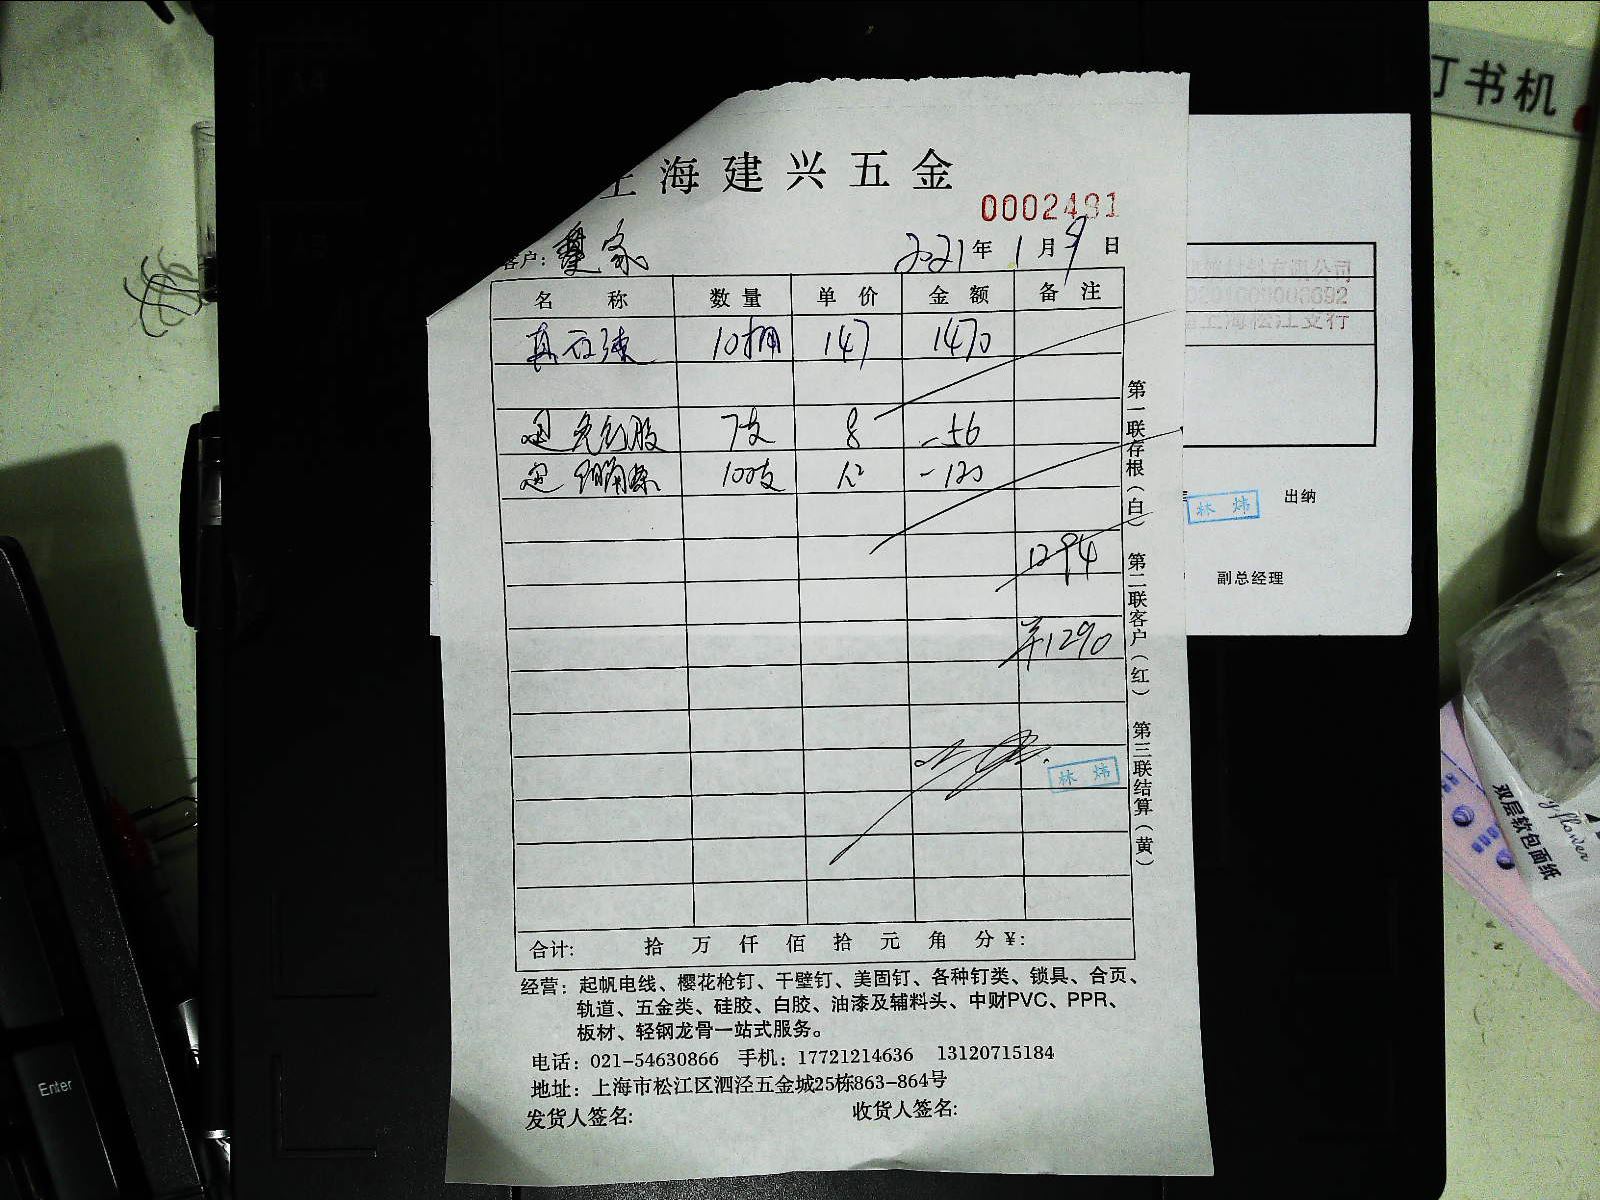 订书机
上海建兴五金
0002491
客户：
2021年1月9日
名称 数量 单价 金额 备注
真石漆 10桶 147 1470
退 免钉胶 7支 8 -56
退 阴角条 100支 1.2 -120
1294
1290
林炜
合计: 拾 万 仟 佰 拾 元 角 分 ¥:
经营：起帆电线、樱花枪钉、干壁钉、美固钉、各种钉类、锁具、合页、
轨道、五金类、硅胶、白胶、油漆及辅料头、中财PVC、PPR、
板材、轻钢龙骨一站式服务。
电话：021-54630866 手机：17721214636 13120715184
地址：上海市松江区泗泾五金城25栋863-864号
发货人签名: 收货人签名:
第一联存根（白） 第二联客户（红） 第三联结算（黄）
有限公司
上海松江支行
林炜 出纳
副总经理
Enter
双层软包面纸